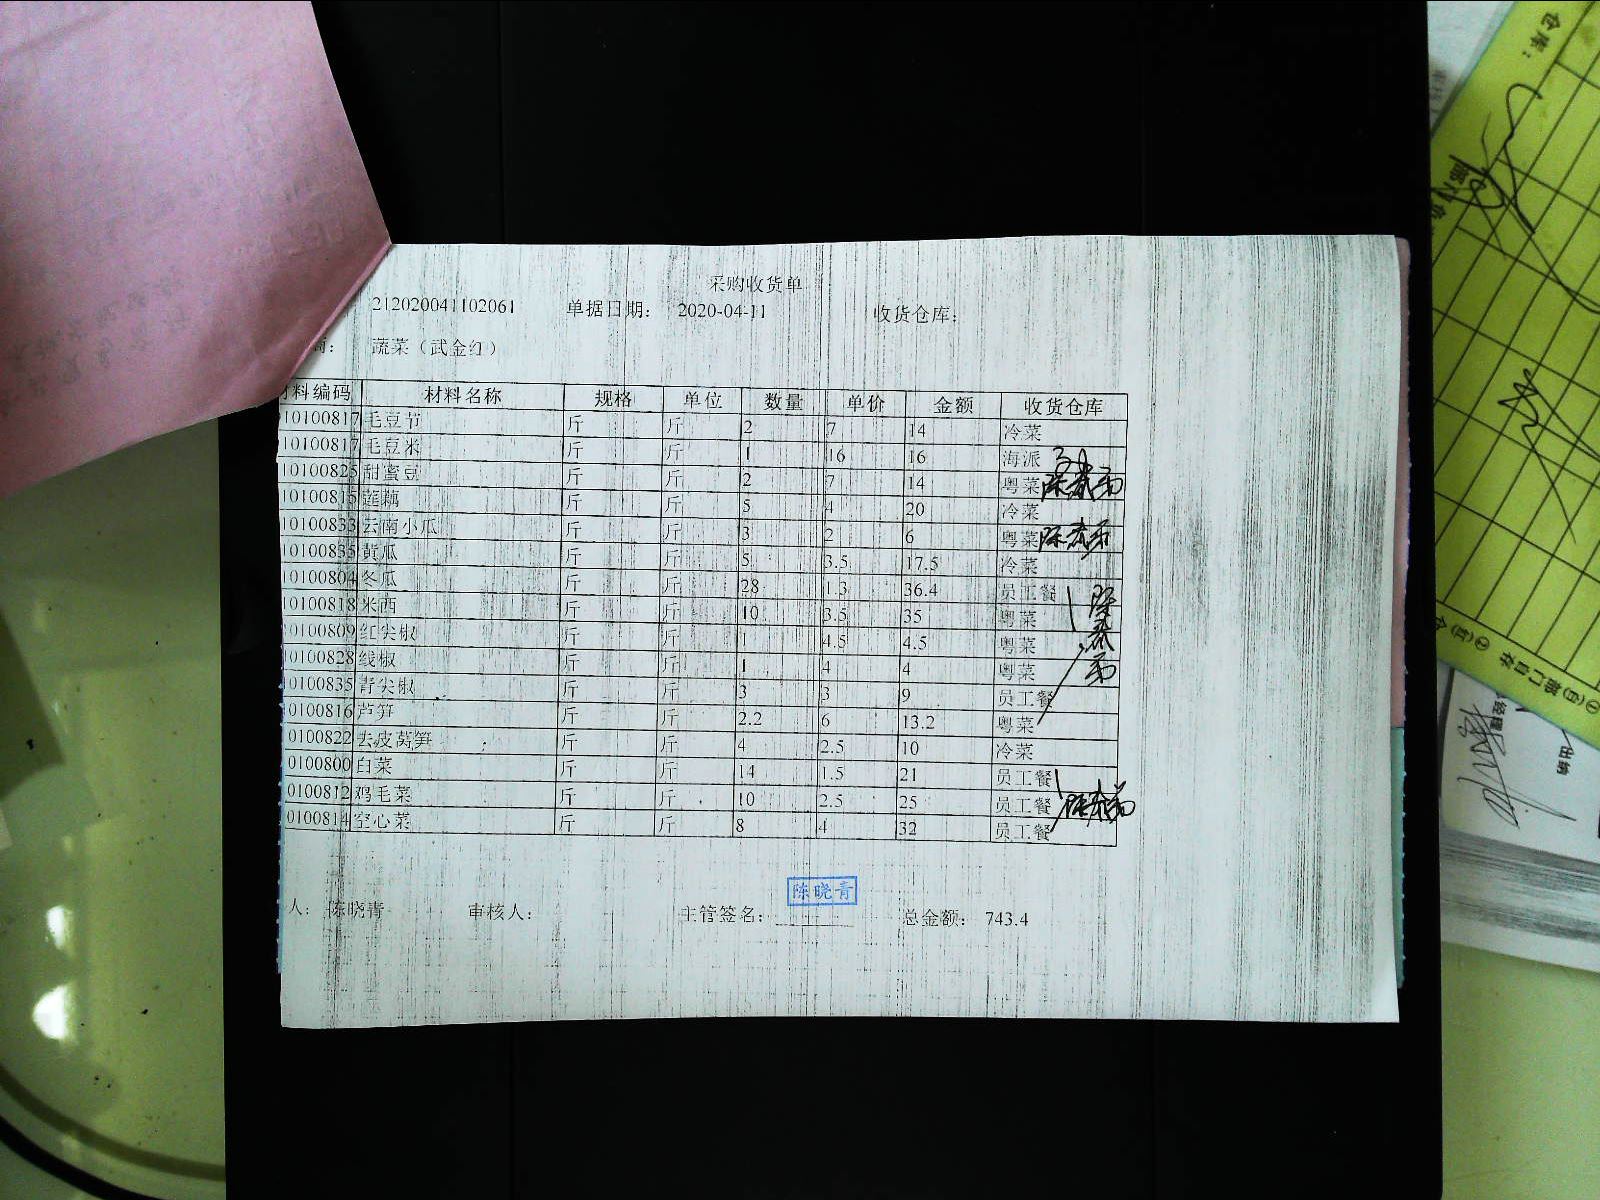 采购收货单
212020041102061 单据日期： 2020-04-11 收货仓库：
商： 蔬菜（武金红）
材料编码 材料名称 规格 单位 数量 单价 金额 收货仓库
10100817 毛豆节 斤 斤 2 7 14 冷菜
10100817 毛豆米 斤 斤 1 16 16 海派
10100825 甜蜜豆 斤 斤 2 7 14 粤菜
10100815 莲藕 斤 斤 5 4 20 冷菜
10100833 云南小瓜 斤 斤 3 2 6 粤菜
10100835 黄瓜 斤 斤 5 3.5 17.5 冷菜
10100804 冬瓜 斤 斤 28 1.3 36.4 员工餐
10100818 米西 斤 斤 10 3.5 35 粤菜
10100809 红尖椒 斤 斤 1 4.5 4.5 粤菜
10100828 线椒 斤 斤 1 4 4 粤菜
10100835 青尖椒 斤 斤 3 3 9 员工餐
0100816 芦笋 斤 斤 2.2 6 13.2 粤菜
0100822 去皮莴笋 斤 斤 4 2.5 10 冷菜
0100800 白菜 斤 斤 14 1.5 21 员工餐
0100812 鸡毛菜 斤 斤 10 2.5 25 员工餐
0100814 空心菜 斤 斤 8 4 32 员工餐
陈晓青
人： 陈晓青 审核人： 主管签名： 总金额： 743.4
仓库：
出纳